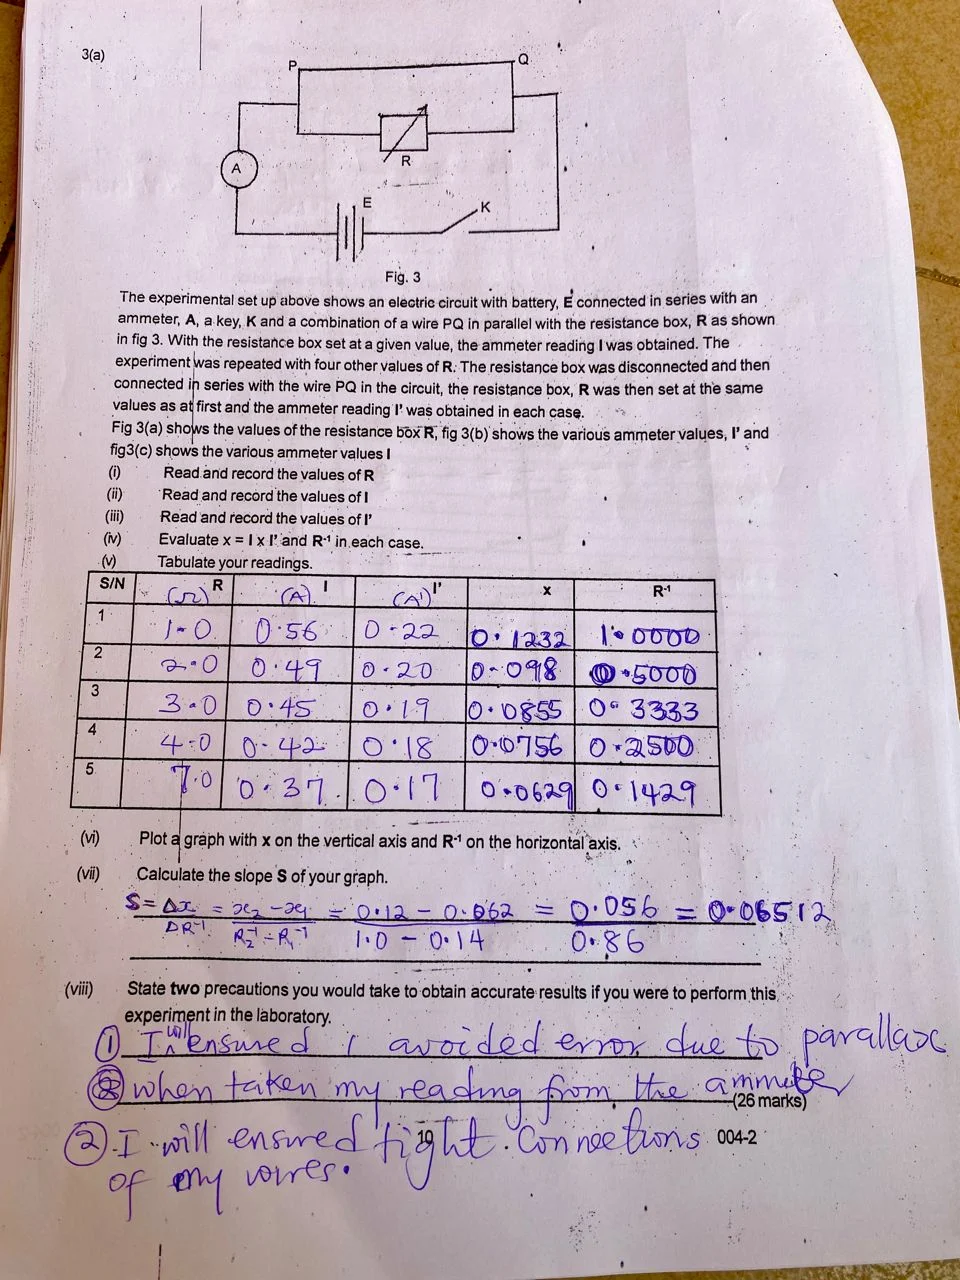 3(a)
P Q
R
A
E
K
Fig. 3
The experimental set up above shows an electric circuit with battery, E connected in series with an
ammeter, A, a key, K and a combination of a wire PQ in parallel with the resistance box, R as shown
in fig 3. With the resistance box set at a given value, the ammeter reading I was obtained. The
experiment was repeated with four other values of R. The resistance box was disconnected and then
connected in series with the wire PQ in the circuit, the resistance box, R was then set at the same
values as at first and the ammeter reading I' was obtained in each case.
Fig 3(a) shows the values of the resistance box R, fig 3(b) shows the various ammeter values, I' and
fig3(c) shows the various ammeter values I
(i) Read and record the values of R
(ii) Read and record the values of I
(iii) Read and record the values of I'
(iv) Evaluate x = I x I' and R⁻¹ in each case.
(v) Tabulate your readings.
S/N R (Ω) I (A) I' (A') x R⁻¹
1 1.0 0.56 0.22 0.1232 1.0000
2 2.0 0.49 0.20 0.098 0.5000
3 3.0 0.45 0.19 0.0855 0.3333
4 4.0 0.42 0.18 0.0756 0.2500
5 7.0 0.37 0.17 0.0629 0.1429
(vi) Plot a graph with x on the vertical axis and R⁻¹ on the horizontal axis.
(vii) Calculate the slope S of your graph.
S = Δx = x₂ - x₁ = 0.12 - 0.062 = 0.056 = 0.06512
ΔR⁻¹ R₂⁻¹ - R₁⁻¹ 1.0 - 0.14 0.86
(viii) State two precautions you would take to obtain accurate results if you were to perform this
experiment in the laboratory.
① I will ensured I avoided error due to parallax
when taken my reading from the ammeter
(26 marks)
② I will ensured tight connections
10 004-2
of my wires.